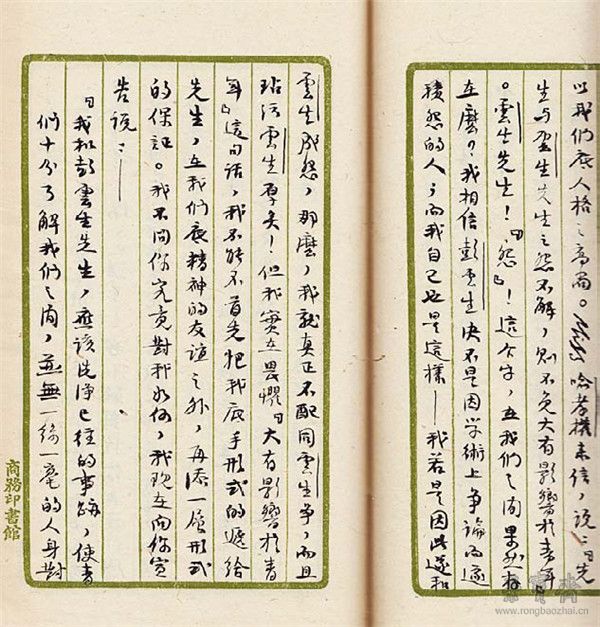 以我们底人格之高尚。哈孝機来信，说：「先
生与云生先生之怨不解，则不免大有影響於青年
。雲生先生！「怨」！這个字，在我们之间果然存
在麽？我相信彭雲生决不是因学術上争論而遂
積怨的人；而我自己也是這樣——我若是因此遂和
雲生成怨，那麽，我就真正不配同雲生争，而且
玷污雲生厚矣！但我實在畏懼「大有影響於青
年」這句话，我不能不首先把我底手形式的遞给
先生，在我们底精神的友谊之外，再添一層形式
的保証。我不问你究竟對我如何，我现在向你宣
告说：——
「我和彭雲生先生，應该洗浄已往的事跡，使青
们十分了解我们之间，並無一絲一毫的人身對
商務印書館
榮寳齋
www.rongbaozhai.cn